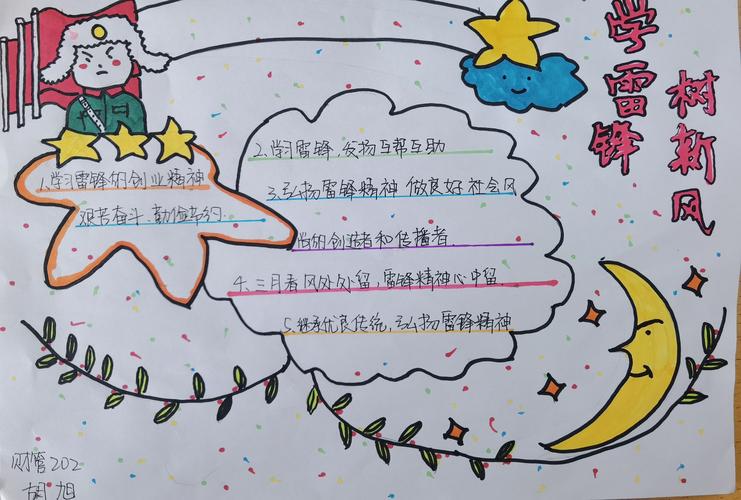 学雷锋
树新风
1.学习雷锋的创业精神
艰苦奋斗、勤俭节约.
2.学习雷锋,发扬互帮互助
3.弘扬雷锋精神 做良好社会风
尚的创造者和传播者.
4.三月春风处处留,雷锋精神心中留
5.继承优良传统,弘扬雷锋精神
财管202
胡旭